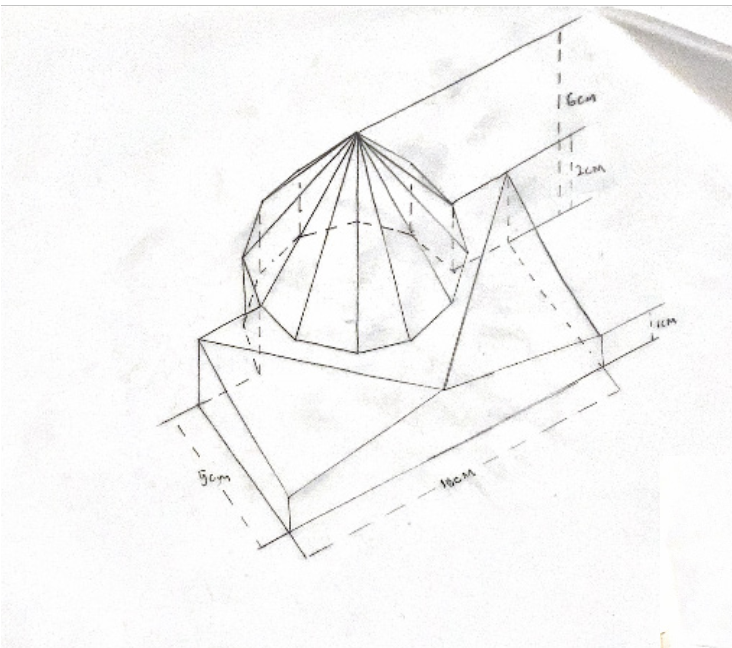 6cm
2cm
1cm
5cm
10cm